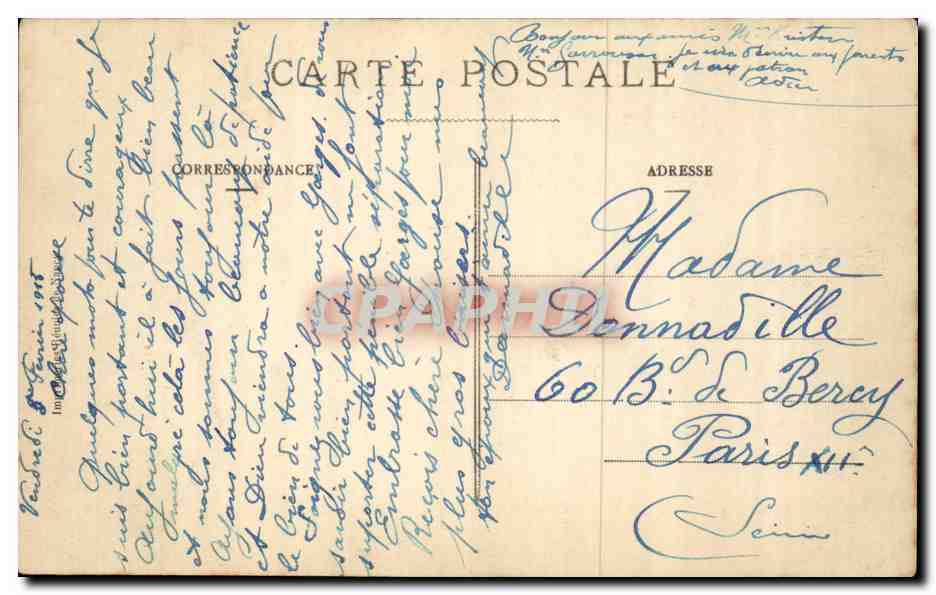 CARTE POSTALE
CORRESPONDANCE
ADRESSE
Bonjour aux amis Mme
Mr je vais écrire aux parents
et aux patron
Adieu
Vendredi 5 Fevrier 1915
Quelques mots pour te dire que je
suis bien portant et courageux
Aujourd'hui il à fait bien beau
cela les jours passent
et nous sommes toujours là
Ayons toujours beaucoup de patience
et Dieu viendra a notre aide pour
le bien de tous.
Soignez vous bien avec Georges.
bien portant ils font
supporter cette penible séparation
Embrasse bien Georges pour moi
Reçois chère epouse mes
plus gros baisers.
Ton epoux qui t'aime
Donnadille
Madame
Donnadille
60 Bd. de Bercy
Paris XIIe
Seine
CPAPHIL